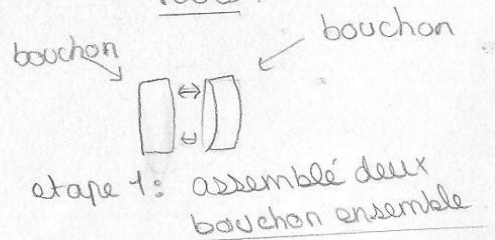 bouchon
bouchon
etape 1: assemblé deux
bouchon ensemble